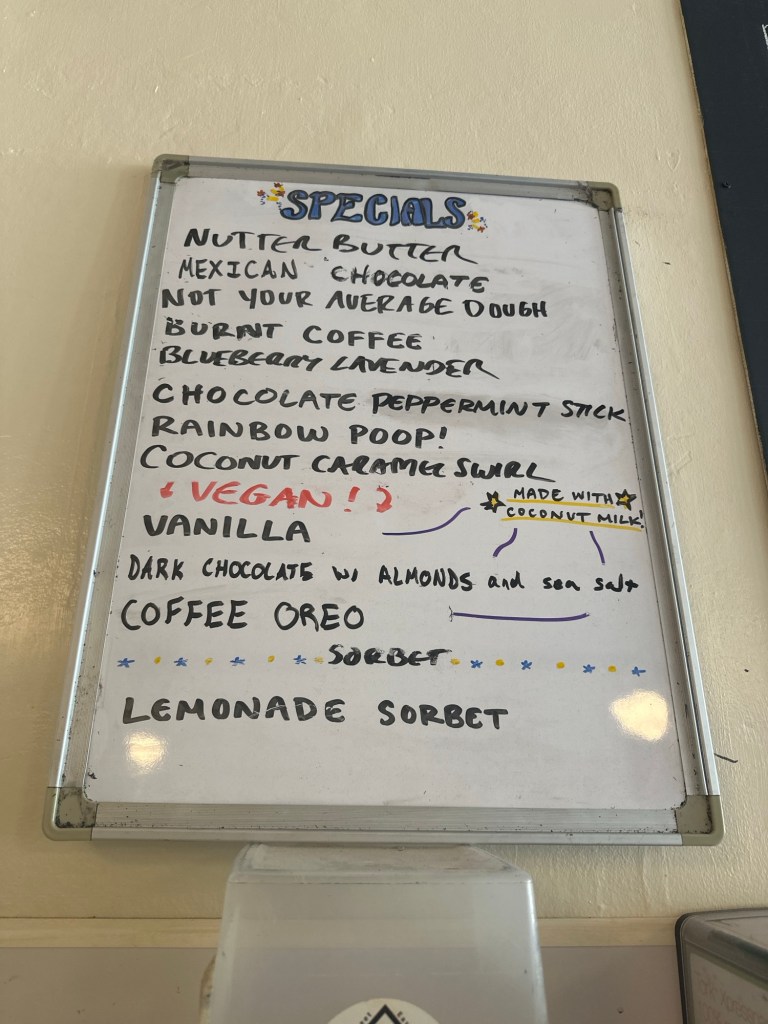 SPECIALS
NUTTER BUTTER
MEXICAN CHOCOLATE
NOT YOUR AVERAGE DOUGH
BURNT COFFEE
BLUEBERRY LAVENDER
CHOCOLATE PEPPERMINT STICK
RAINBOW POOP!
COCONUT CARAMEL SWIRL
VEGAN!
MADE WITH
COCONUT MILK!
VANILLA
DARK CHOCOLATE w/ ALMONDS and sea salt
COFFEE OREO
SORBET
LEMONADE SORBET